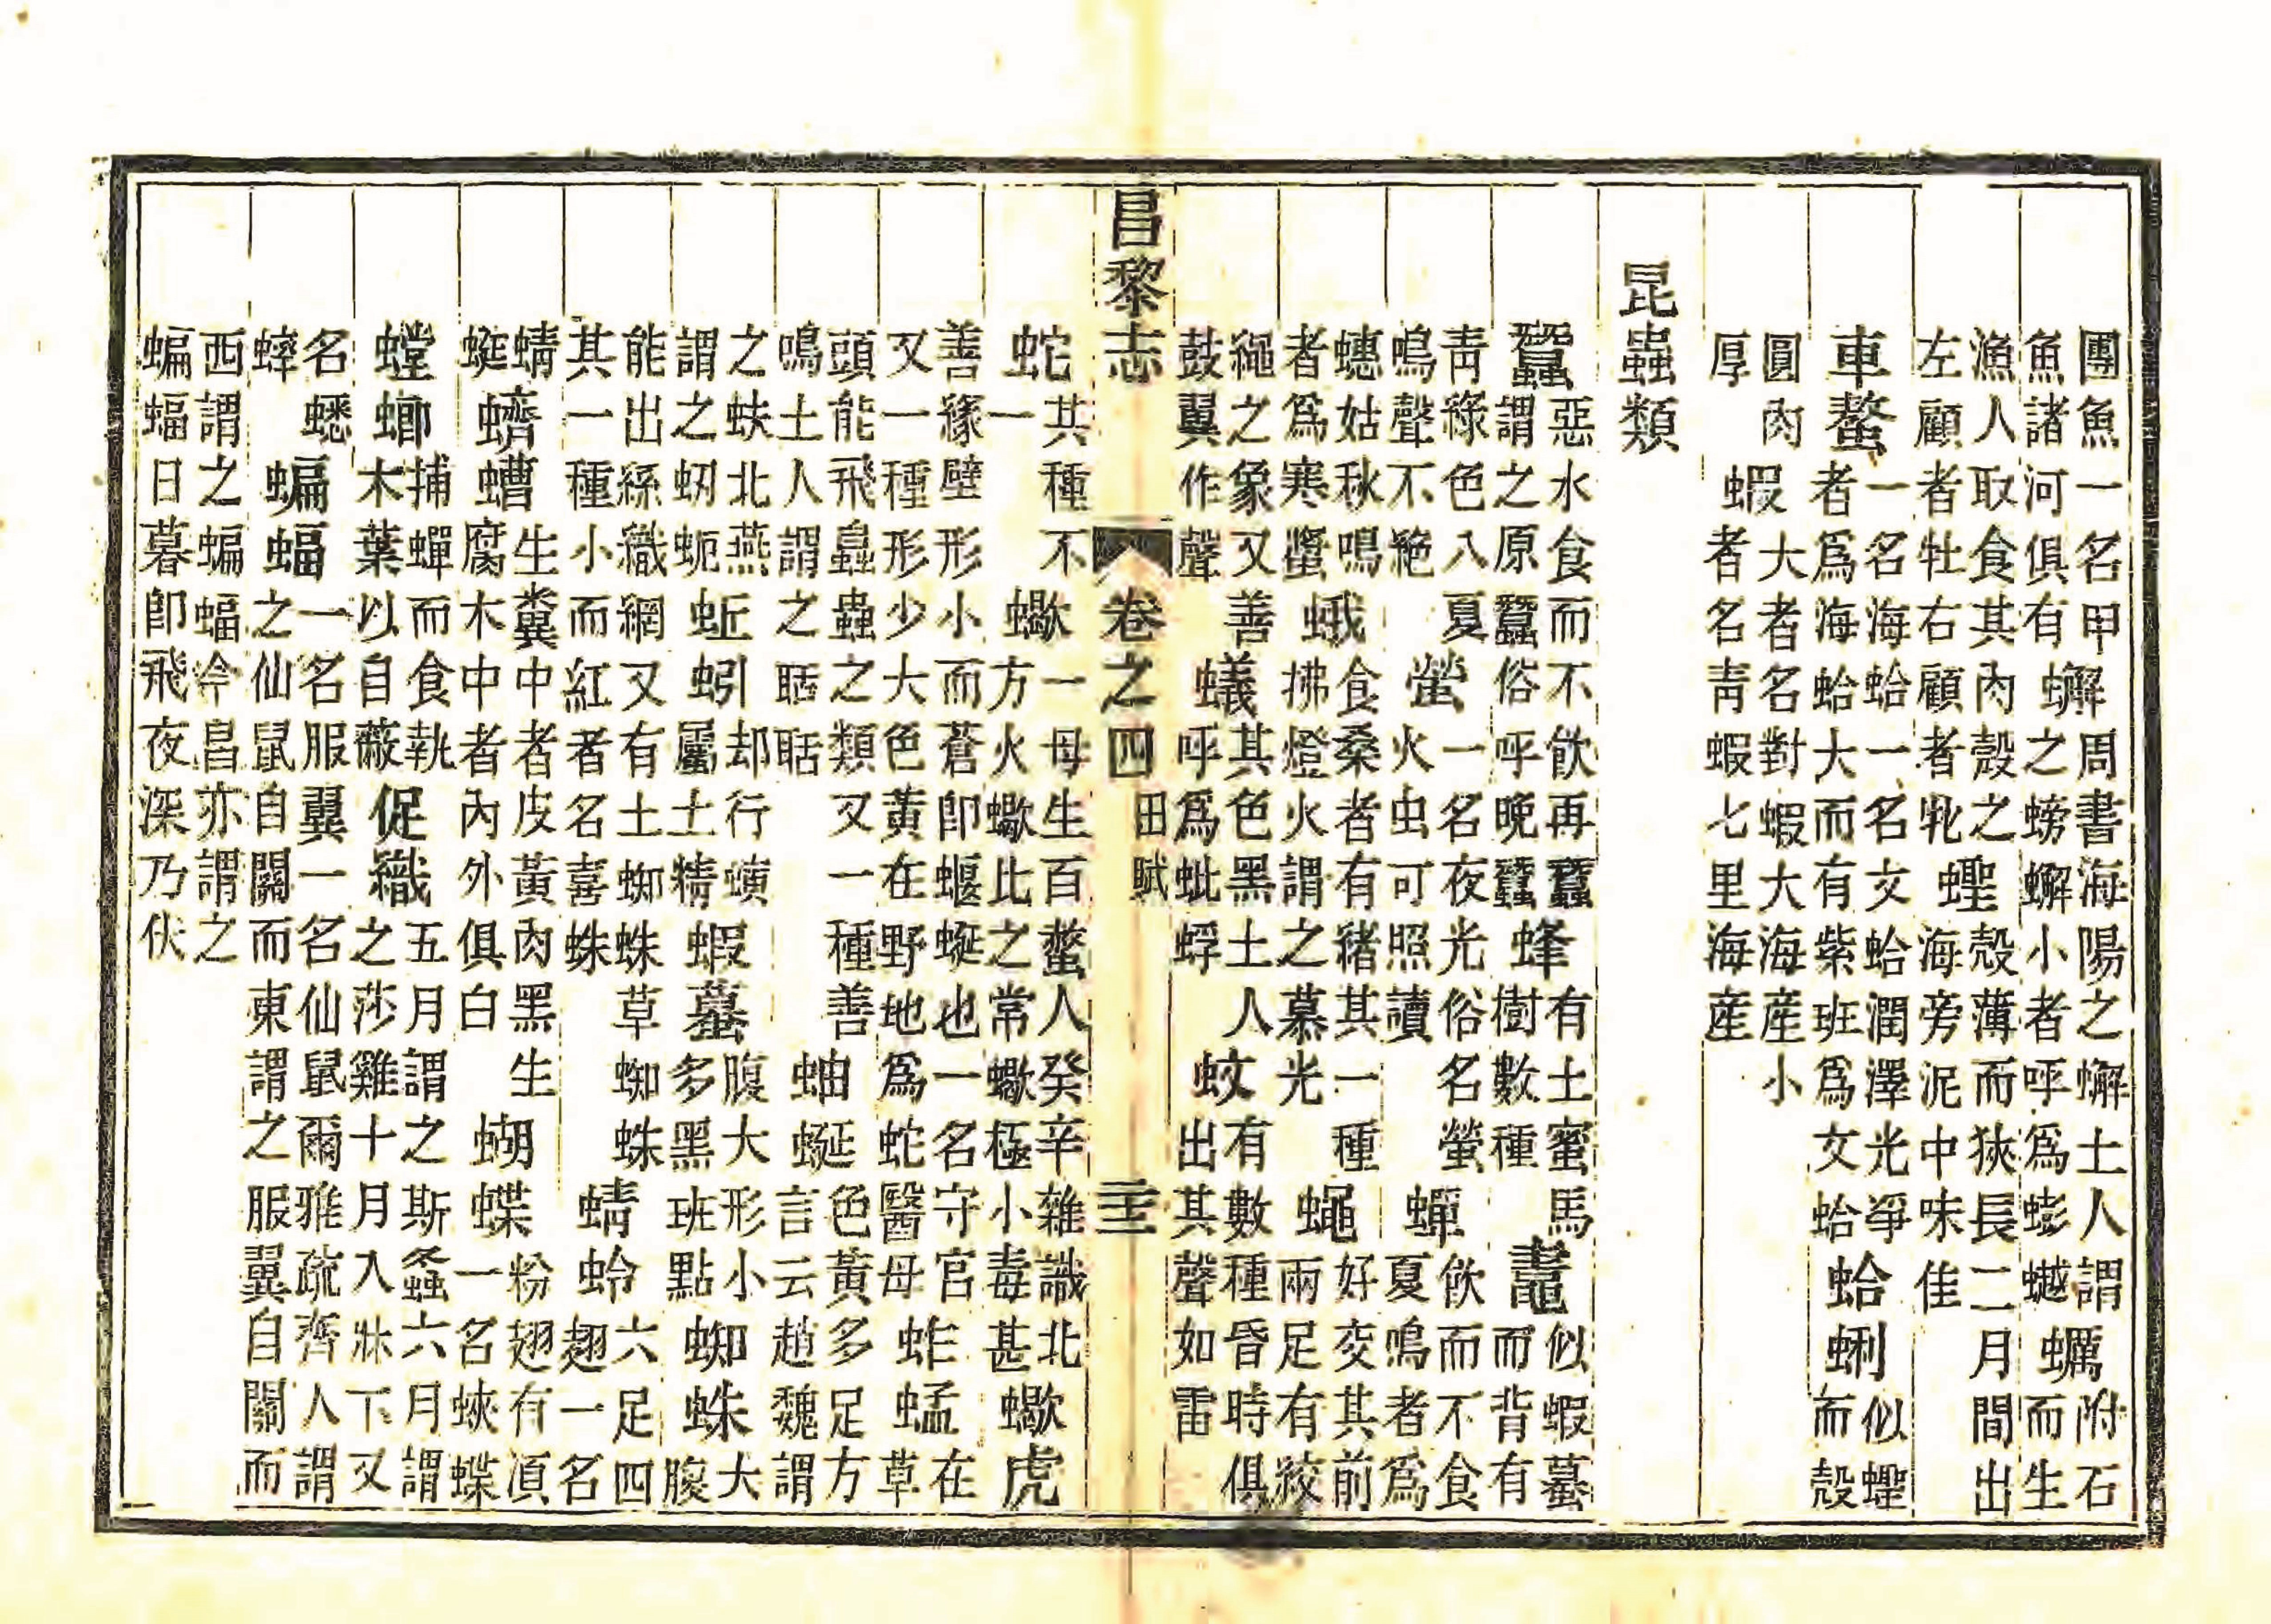 團魚一名甲魚諸河俱有 蠏周書海陽之蠏土人謂之螃蠏小者呼爲蟛𧑅 蠣附石而生
漁人取食其內殼之左顧者牡右顧者牝 蟶殼薄而狹長二月間出海旁泥中味佳
車螯一名海蛤一名文蛤潤澤光爭者爲海蛤大而有紫班爲文蛤 蛤蜊似蟶而殼
圓肉厚 蝦大者名對蝦大海産小者名青蝦七里海産
昆蟲類
蠶惡水食而不飲再蠶謂之原蠶俗呼晚蠶 蜂有土蜜馬樹數種 鼃似蝦蟇而背有
青綠色入夏鳴聲不絕 螢一名夜光俗名螢火虫可照讀 蟬飲而不食夏鳴者爲
蟪姑秋鳴者爲寒螿 蛾食桑者有緒其一種拂燈火謂之慕光 蠅好交其前兩足有絞
繩之象又善鼓翼作聲 蟻其色黑土人呼爲蚍蜉 蚊有數種昏時俱出其聲如雷
昌黎志 卷之四 田賦
蛇其種不一 蠍一母生百螫人癸辛雜識北方火蠍比之常蠍極小毒甚 蠍虎
善緣壁形小而蒼卽蝘蜒也一名守官又一種形少大色黃在野地爲蛇醫母 蚱蜢在草
頭能飛蟲之類又一種善鳴土人謂之聒聒 蚰蜒色黃多足方言云趙魏謂
之蚨北燕謂之 蚯蚓却行蟥屬土精 蝦蟇腹大形小多黑班點 蜘蛛大腹
能出絲織網又有土蜘蛛草蜘蛛其一種小而紅者名喜蛛 蜻蛉六足四翅一名
蜻蜓 蠐螬生糞中者皮黃肉黑生腐木中者內外俱白 蝴蝶粉翅有湏一名蛺蝶
螳螂捕蟬而食執木葉以自蔽 促織五月謂之斯螽六月謂之莎雞十月入牀下又
名蟋蟀 蝙蝠一名服翼一名仙鼠爾雅疏齊人謂之仙鼠自關而東謂之服翼自關而
西謂之蝙蝠今昌亦謂之蝙蝠日暮卽飛夜深乃伏